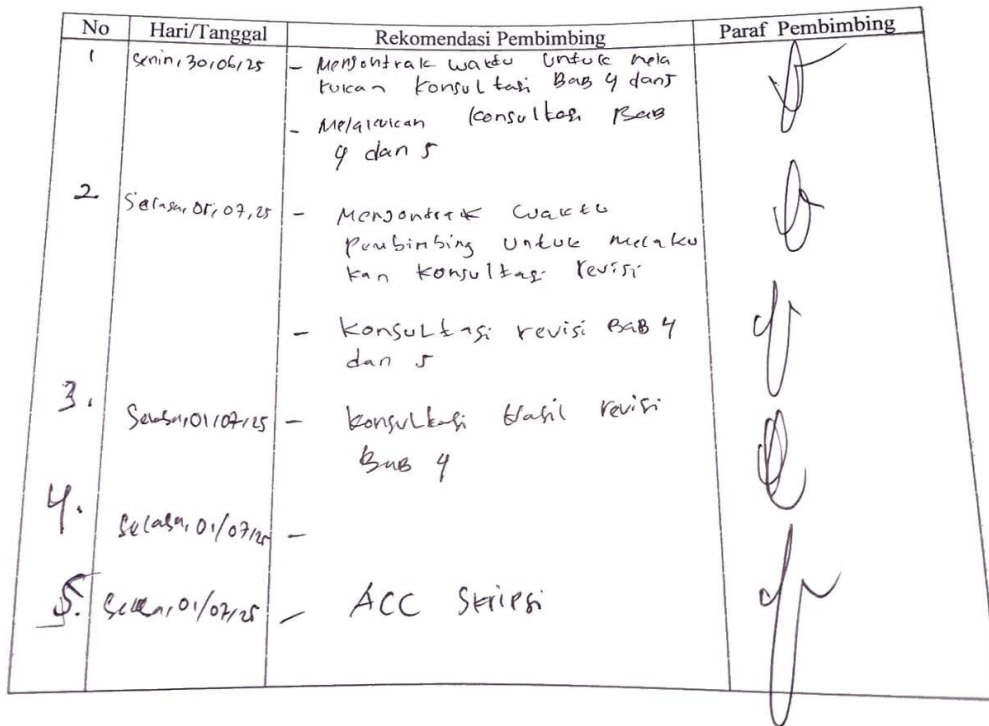 No Hari/Tanggal Rekomendasi Pembimbing Paraf Pembimbing
1 Senin, 30,06,25 - Mengontrak waktu untuk mela
kukan konsultasi Bab 4 dan 5
- Melakukan konsultasi Bab
4 dan 5
2 Selasa, 01,07,25 - Mengontrak waktu
pembimbing untuk melaku
kan konsultasi revisi
- konsultasi revisi BAB 4
dan 5
3. Selasa, 01/07/25 - konsultasi Hasil revisi
BAB 4
4. Selasa, 01/07/25 -
5. Selasa, 01/07/25 - ACC Skripsi